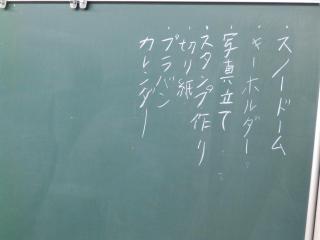 ・スノードーム
・キーホルダー
・写真立て
・スタンプ作り
・切り紙
・プラバン
カレンダー